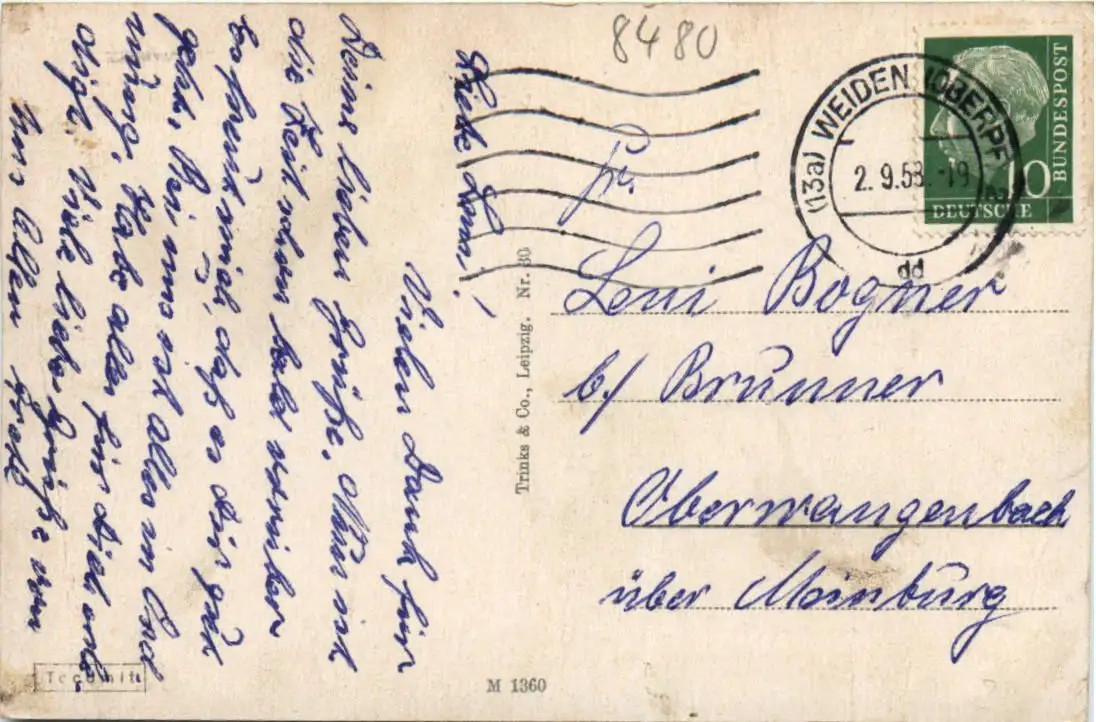 8480
(13a) WEIDEN (OBERPF
2. 9.58.-19
dd
10
DEUTSCHE
BUNDESPOST
Fr.
Leni Bogner
b/ Brunner
Oberwangenbach
über Mainburg
Liebe
Vielen Dank für
Deine lieben Grüße. Nun ist
die Zeit schon bald vorüber
Es freut mich, daß es dir gut
geht. Bei uns ist alles in Ord
nung. Habe alles für dich erle-
digt. Viele liebe Grüße von
uns allen
Trinks & Co., Leipzig. Nr. 80
M 1360